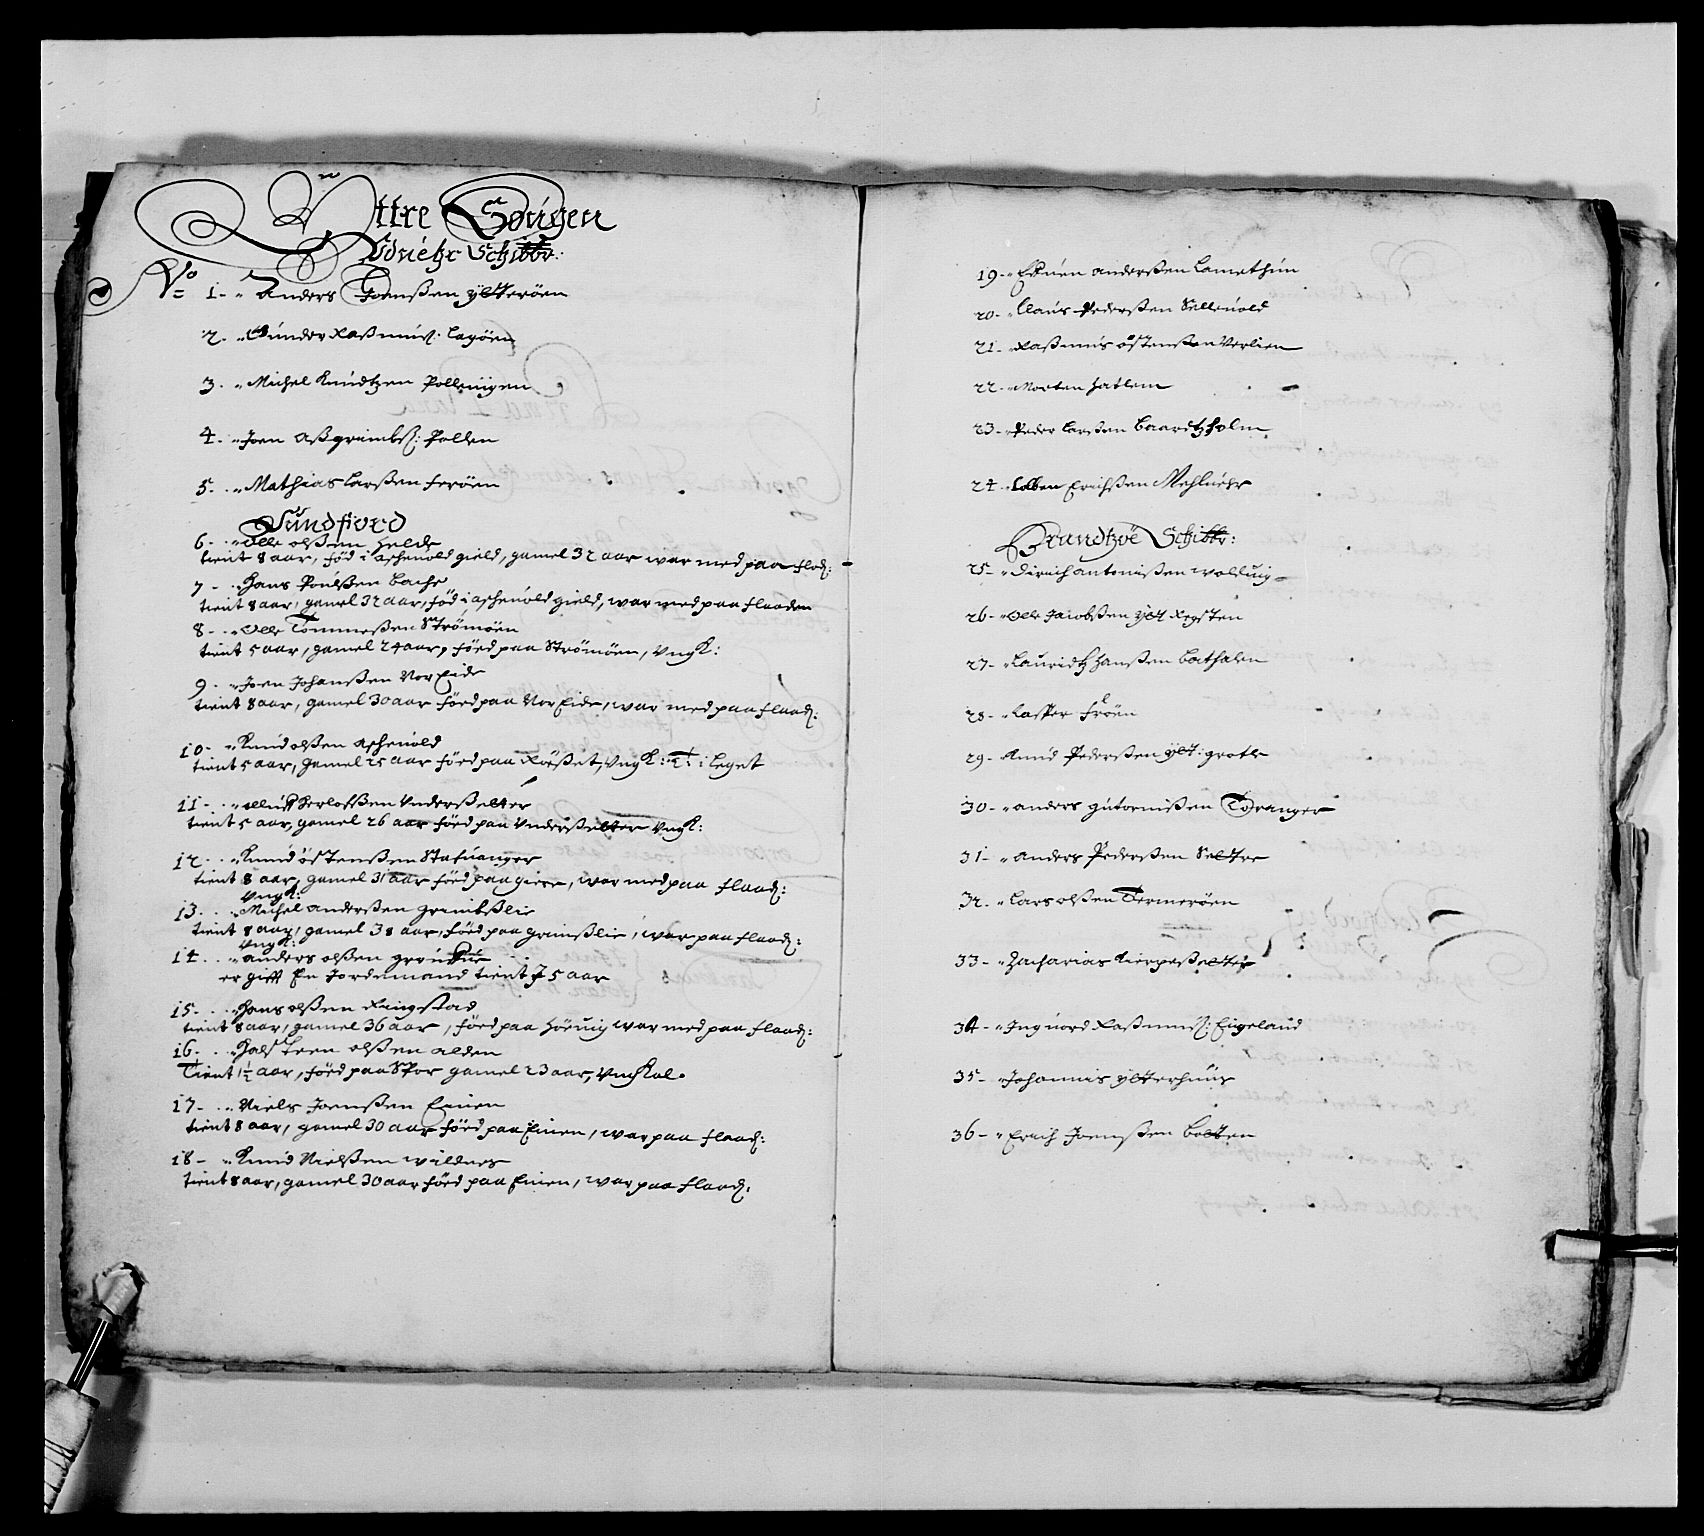 Yttre Sougen
Udwehr Schibbr:
No 1- Anders Joenßen ytterøen
2. Gunder Raßmuß: Lagöen
3. Michel Knudtzen Pollenigen
4. Joen Aßgrimbß: Pollen
5. Mathias Larßen Ferøen
Sundfiord
6- Olle Olßen Helde
tient 8 aar, föd i aschuold gield, gamel 32 aar war med paa flod:
7- Hans Poelßen Bache
tient 8 aar, gamel 32 aar, föd i aschuold gield, war med paa flaaden
8- Olle Tommeßen Strömöen
tient 5 aar, gamel 24 aar, föed paa Strömöen, VngK:
9- Joen Johanßen Vor Eide
tient 8 aar, gamel 30 aar föed paa Vor Eide, war med paa flaad:
10- Knud olßen Aschuold
tient 5 aar, gamel 25 aar föed paa, VngK: i Leget
11- Herlofßen Underßelter
tient 5 aar, gamel 26 aar föed paa Underßelter VngK:
12- Knud östenßen Stafuanger
tient 8 aar, gamel 31 aar föed paa giere, war med paa flaad:
VngK:
13- Michel Anderßen grimbßlie
tient 8 aar, gamel 38 aar, föed paa grimßlie, war paa flaad:
VngK:
14- anders olßen
er gifft En Jordemand tient 75 aar
15- Hans olßen Ringstad
tient 8 aar, gamel 36 aar, föed paa Höeuig war med paa flaad:
16- Halsteen olßen alden
Tient 1½ aar, föed paa Spor gamel 23 aar, VnchKal.
17- Niels Joenßen Euen
tient 8 aar, gamel 30 aar föed paa Euen, war paa flaad:
18- Knud Nielßen wildnes
tient 8 aar, gamel 30 aar föed paa Euen, war paa flaad:
19- anderßen Lamethun
20- Claus Pederßen Sellewold
21- Raßmus östenßen Verlien
22- Morten Hatlem
23- Peder Larßen Baardtzholm
24- Erichßen Mehluehr
Brandtzöe Schibbr:
25- Dirich antonißen wolluig
26- Olle Jacobßen ytt Reysten
27- Lauridtz Hanßen Bathalen
28- Casper Fröen
29- Knud Pederßen ytt: grotle
30- anders gutormßen Toranger
31- anders Pederßen Seltre
32- Lars olßen Termerøen
33- Zacharias Kierpeßelter
34- Inguord Raßmuß: Engeland
35- Johannis ytterhuus
36- Erich Joenßen Botten